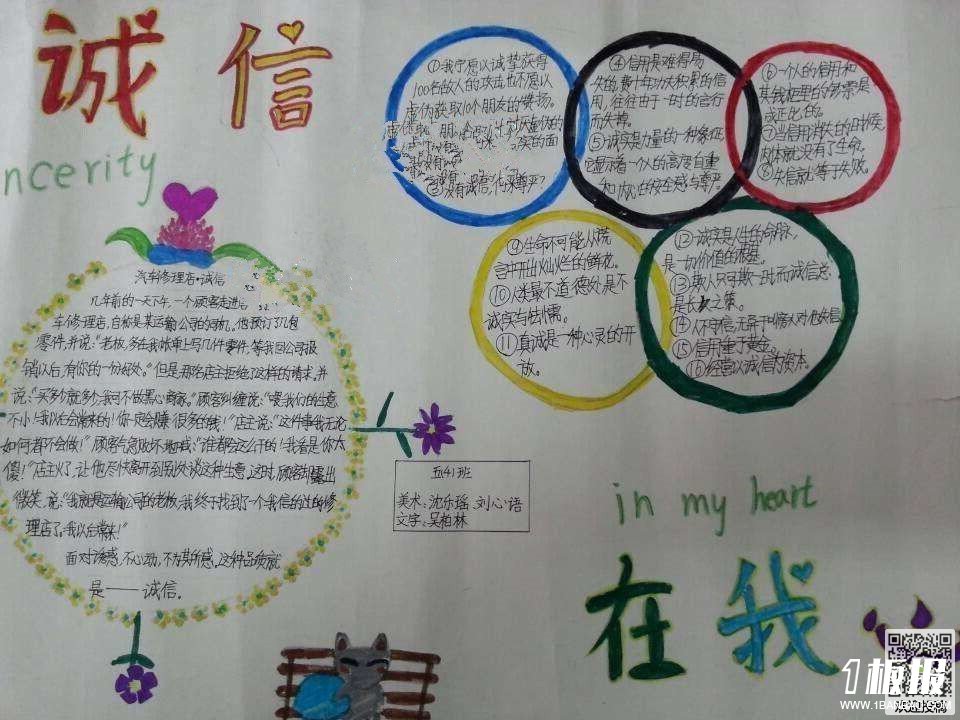 诚信
ncerity
①我宁愿以诚挚获得
100名敌人的攻击也不愿以
虚伪获取10个朋友的赞扬。
③没有诚信,何来尊严?
④信用是难得易
失的费十年功夫积累的信
用,往往由于一时的言行
而失掉。
⑤诚实是力量的一种象征,
它显示着一个人的高度自重
和内心的安全感与尊严。
⑥一个人的信用和
其钱柜里的钞票是
成正比的。
⑦当信用消失的时候,
肉体就没有了生命。
⑧失信就等于失败。
⑨生命不可能从谎
言中开出灿烂的鲜花。
⑩人类最不道德处是不
诚实与怯懦。
⑪真诚是一种心灵的开
放。
⑫诚实是人生的命脉,
是一切价值的根基。
⑬欺人只可欺一时而诚信总
是长久之策。
⑮信用重于黄金。
⑯经营以诚信为资本。
汽车修理店·诚信
几年前的一天下午,一个顾客走进
车修理店,自称是某运输公司的司机。他预订了几包
零件,并说:"老板,多在我帐单上写几件零件,等我回公司报
销以后,有你的一份好处。"但是,那店主拒绝了这样的请求,并
说:"买多少就多少,我可不做黑心商家。"顾客纠缠说:"嘿我们的生意
不小!我以后会常来的!你一定会赚很多的钱!"店主说:"这件事我无论
如何都不会做!"顾客气急败坏地喊:"谁都会这么干的!我看是你太
傻!"店主火了,让他尽快离开到别处谈这种生意,这时,顾客却露出
微笑,说:"我就是运输公司的老板,我终于找到了一个我信的过的修
理店了,我以后常来!"
面对诱惑,不心动,不为其所惑。这种品质就
是——诚信。
五41班
美术:沈乐瑶、刘心语
文字:吴柏林
in my heart
在我
1板报
WWW.1BANBAO.COM
欢迎投稿